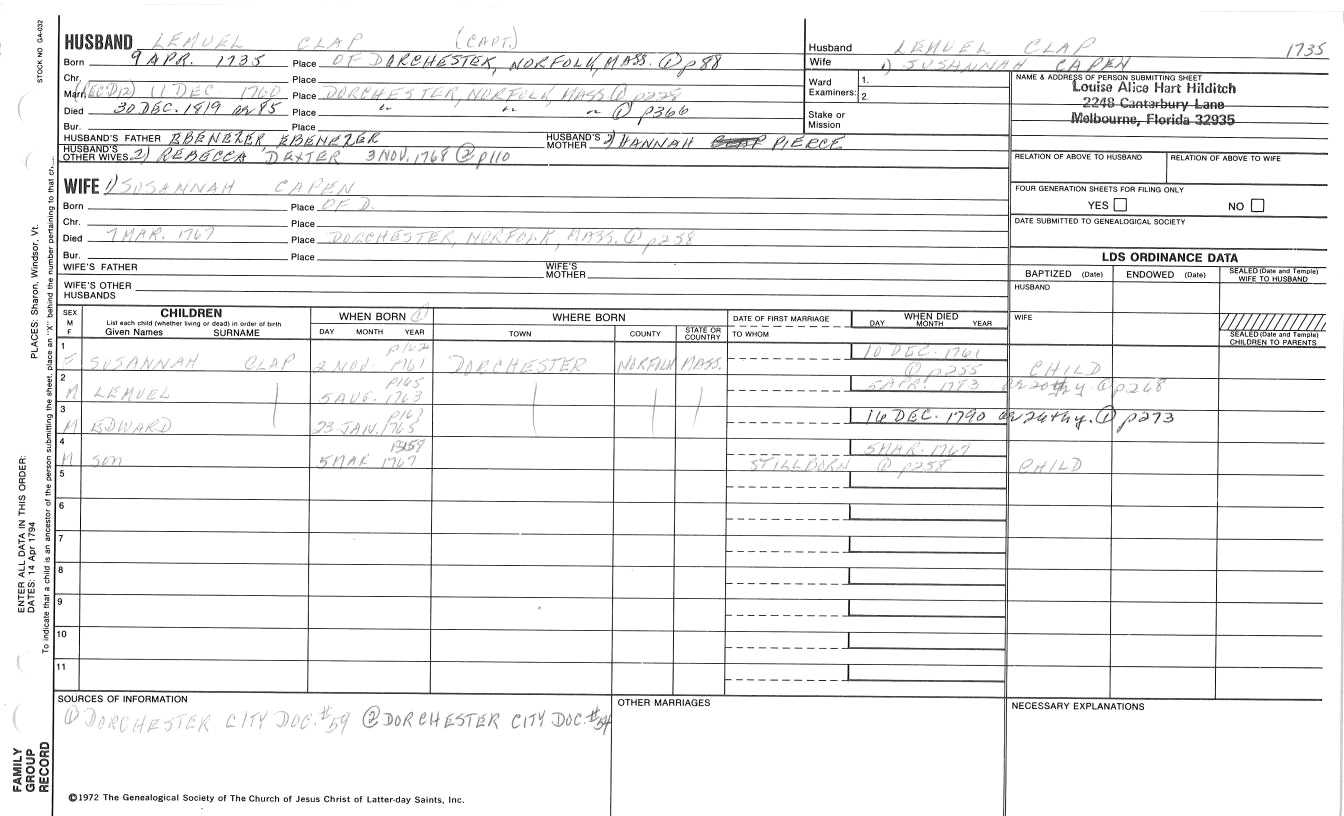 STOCK NO GA-032
PLACES: Sharon, Windsor, Vt.
ENTER ALL DATA IN THIS ORDER:
DATES: 14 Apr 1794
To indicate that a child is an ancestor of the person submitting the sheet, place an "X" behind the number pertaining to that ch
FAMILY GROUP RECORD
HUSBAND LEMUEL CLAP (CAPT.)
Born 9 APR. 1735 Place OF DORCHESTER, NORFOLK, MASS. ① p88
Chr. Place
Marr. 11 DEC 1760 Place DORCHESTER, NORFOLK, MASS ①
Died 30 DEC. 1819 Place " " " ① p366
Bur. Place
HUSBAND'S FATHER EBENEZER EBENEZER HUSBAND'S MOTHER 2) HANNAH PIERCE
HUSBAND'S OTHER WIVES 2) REBECCA DEXTER 3 NOV. 1768 @ p110
Husband LEMUEL CLAP 1735
Wife 1) SUSANNAH CAPEN
Ward Examiners: 1.
2.
Stake or Mission
NAME & ADDRESS OF PERSON SUBMITTING SHEET
Louise Alice Hart Hilditch
2248 Canterbury Lane
Melbourne, Florida 32935
RELATION OF ABOVE TO HUSBAND RELATION OF ABOVE TO WIFE
FOUR GENERATION SHEETS FOR FILING ONLY
YES NO
DATE SUBMITTED TO GENEALOGICAL SOCIETY
WIFE 1) SUSANNAH CAPEN
Born Place OF D.
Chr. Place
Died 7 MAR. 1767 Place DORCHESTER, NORFOLK, MASS. ① p258
Bur. Place
WIFE'S FATHER WIFE'S MOTHER
WIFE'S OTHER HUSBANDS
LDS ORDINANCE DATA
BAPTIZED (Date) ENDOWED (Date) SEALED (Date and Temple) WIFE TO HUSBAND
HUSBAND
WIFE
SEALED (Date and Temple) CHILDREN TO PARENTS
SEX M F
CHILDREN
List each child (whether living or dead) in order of birth
Given Names SURNAME
WHEN BORN ①
DAY MONTH YEAR
WHERE BORN
TOWN COUNTY STATE OR COUNTRY
DATE OF FIRST MARRIAGE
TO WHOM
WHEN DIED
DAY MONTH YEAR
1 p162 10 DEC. 1761
F SUSANNAH CLAP 2 NOV 1761 DORCHESTER NORFOLK MASS. ① p255 CHILD
2 p165 5 APR. 1783 ① p268
M LEMUEL 5 AUG. 1763
3 p167 16 DEC. 1790 ① p273
M EDWARD 23 JAN. 1765
4 5 MAR. 1767
M son 5 MAR 1767 STILLBORN @ p258 CHILD
5
6
7
8
9
10
11
SOURCES OF INFORMATION
① DORCHESTER CITY DOC. #59 ② DORCHESTER CITY DOC. #54
OTHER MARRIAGES
NECESSARY EXPLANATIONS
©1972 The Genealogical Society of The Church of Jesus Christ of Latter-day Saints, Inc.